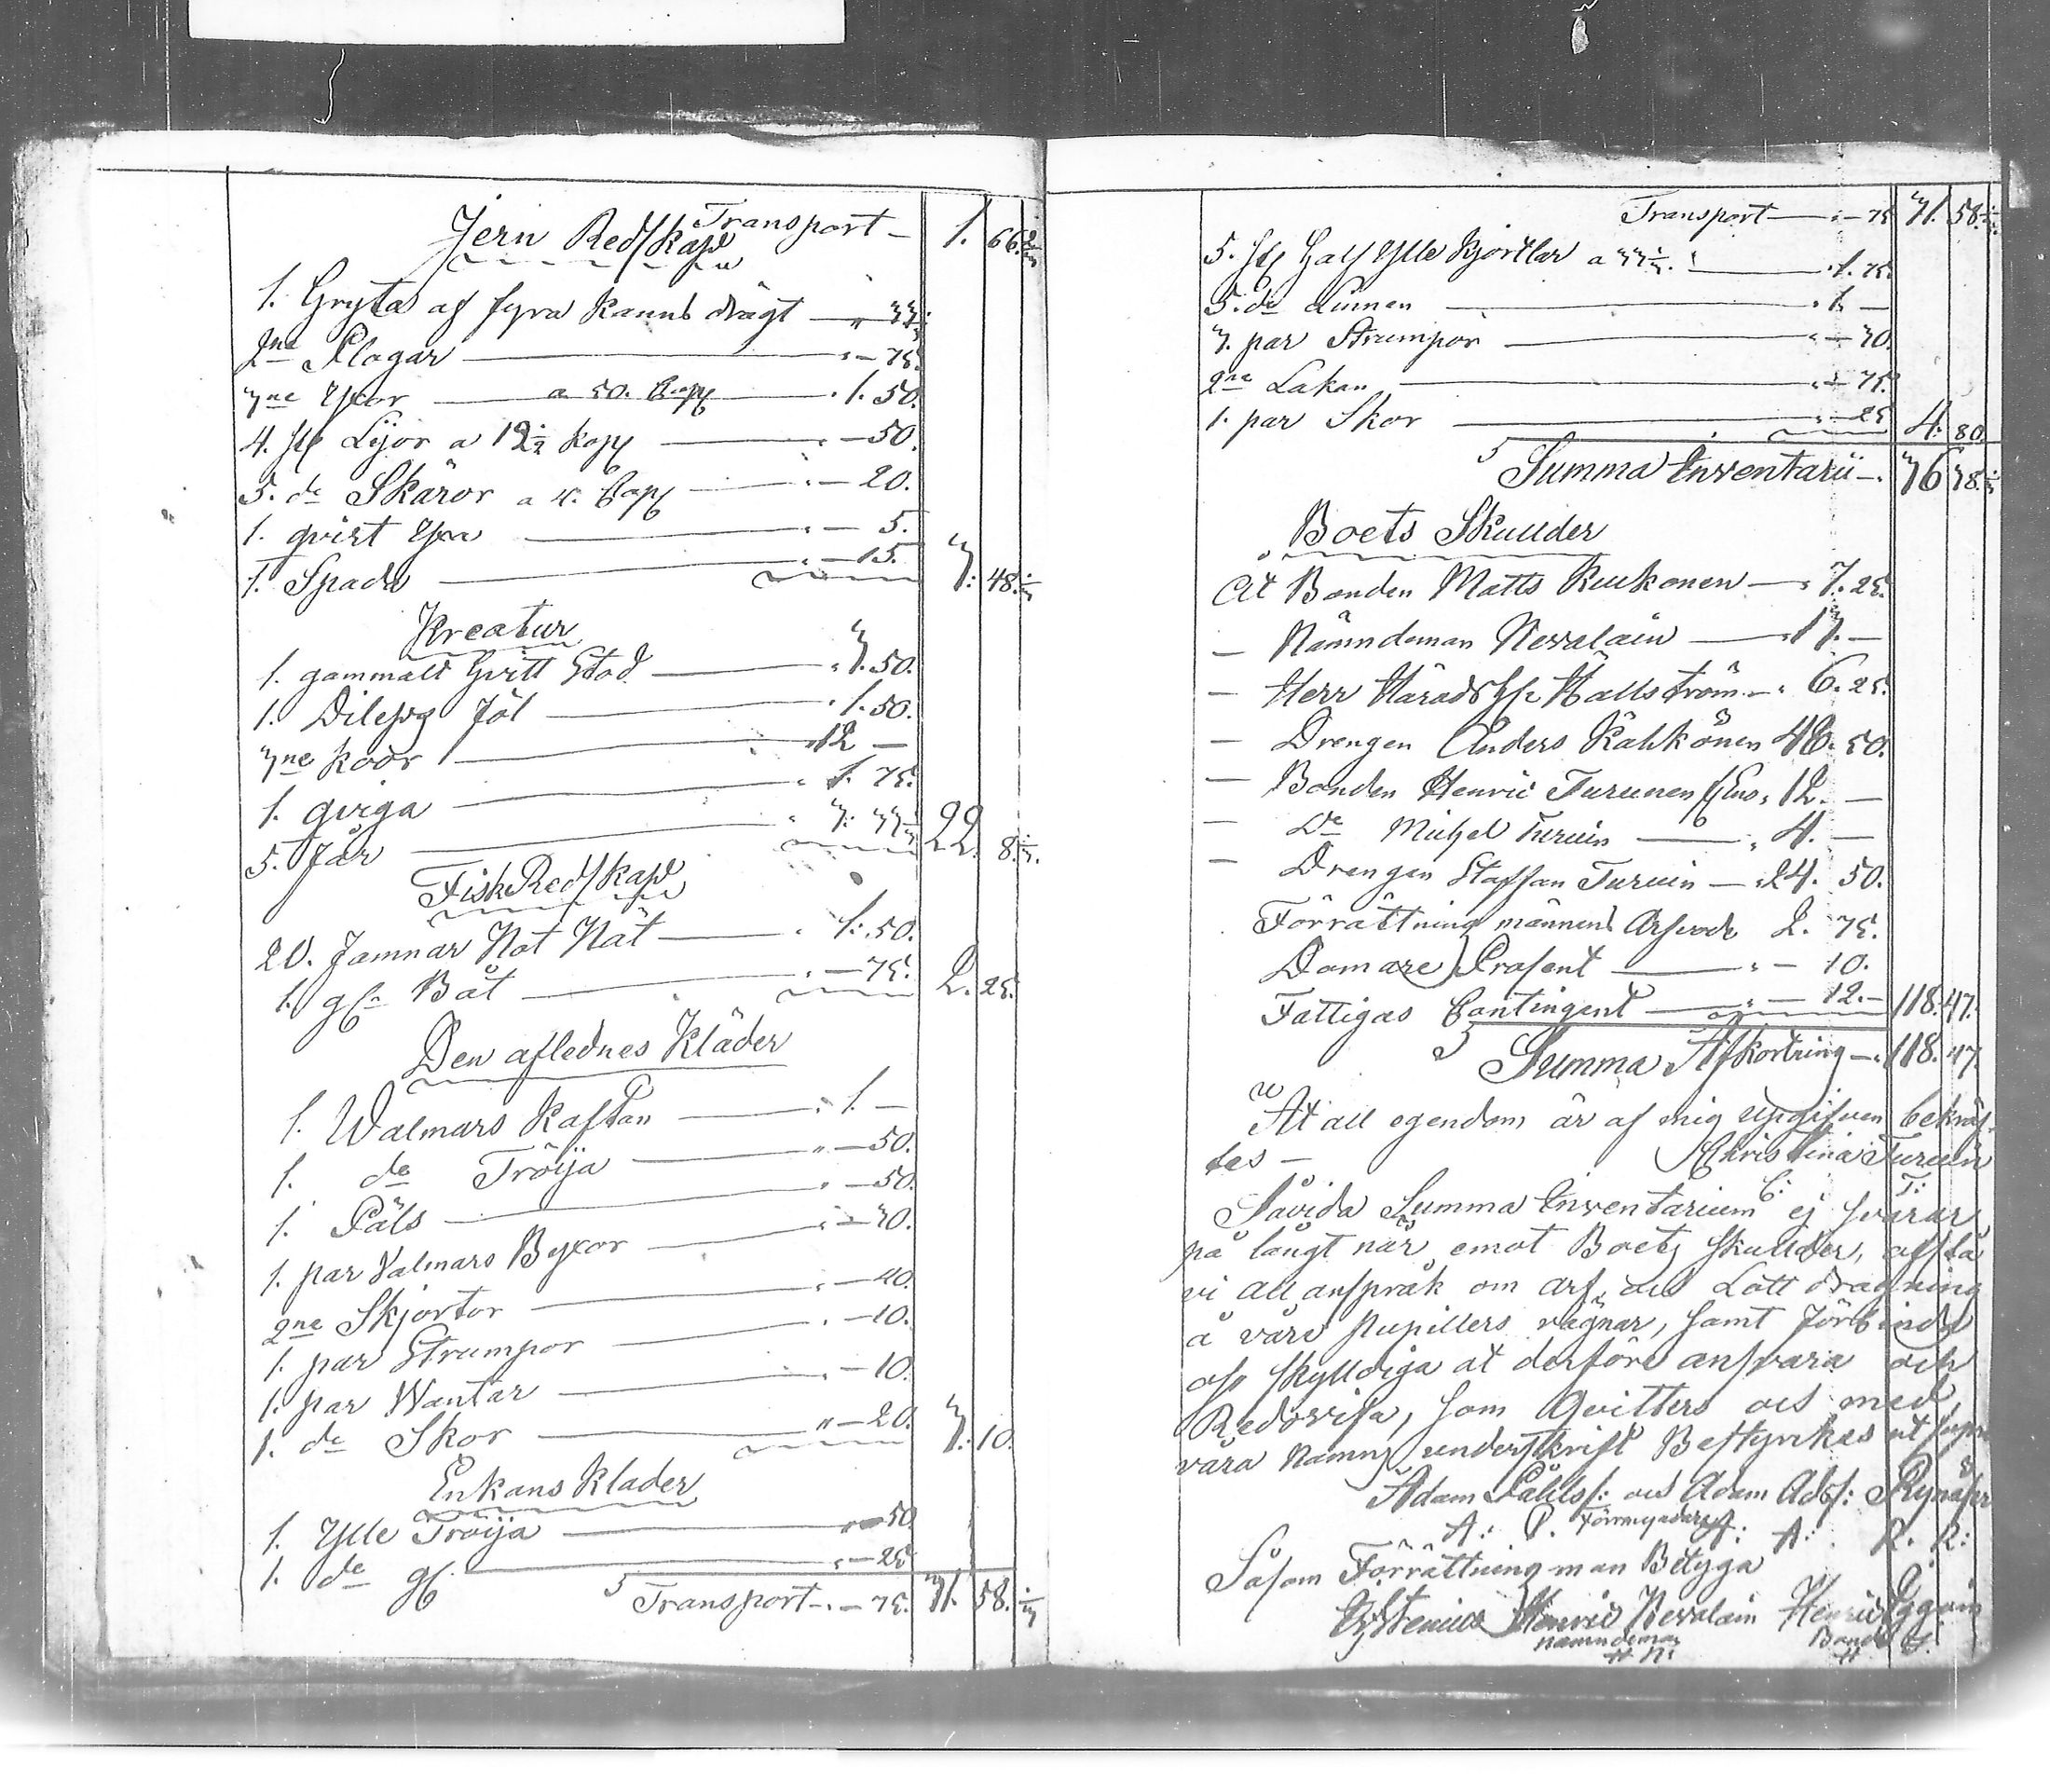 Transport — 1. 66 2/3
Jern Redskap
1. Gryta af fyra kanns drägt — " 33 1/3
2ne Plogar — " — 75.
3ne Yxor — a 50. Cop — 1. 50.
4. st Lijor a 12 1/2 kop — " — 50.
5. do Skäror a 4. Cop — " — 20.
1. qvist Yxa — " — 5.
1. Spada — " — 15. 3. 48 1/3
Kreatur
1. gammalt hvitt Stod — " 3. 50.
1. Föl — " 1. 50.
3ne koor — " 12 —
1. qviga — " 1. 75.
5. Får — " 3. 33 1/3 22. 8 1/3.
Fisk Redskap
20. famnar Not Nät — " 1. 50.
1. gl. Båt — " — 75. 2. 25.
Den aflednes Kläder
1. Walmars Kaftan — " 1. —
1. do Tröija — " — 50.
1. Päls — " — 50.
1. par Valmars Byxor — " — 30.
2ne Skjortor — " — 40.
1. par Strumpor — " — 10.
1. par Wantar — " — 10.
1. do Skor — " — 20. 3. 10.
Enkans Klader
1. Ylle Tröija — " — 50
1. do gl. — " — 25
Transport — " — 75. 31. 58 1/3
Transport — " — 75 31. 58 1/3.
5. st Half Ylle Kjortlar a 33 1/3. — " 1. 75.
5. do Linnen — " 1. —
3. par Strumpor — " — 30.
2ne Lakan — " — 75.
1. par Skor — " — 25 4. 80
Summa Inventarii — 36 38 1/3
Boets Skullder
At Bonden Matts Kuukonen — " 7. 25.
— Nämndeman Nevalain — " 13. —
— Herr Härads Hällström — " 6. 25.
— Drengen Anders Kähkönen 48. 50.
— Bonden Henric Turunen " 12. —
— Do Michel Turuin — " 4. —
— Drengen Staffan Turuin — " 24. 50.
Förrättning männens Arfvode 2. 75.
Domare Prasent — " — 10.
Fattigas Contingent — " — 12. — 118. 47.
Summa Afkortning — 118. 47.
At all egendom är af mig upgifven bekräf-
tas — Christina Turuin
C: T:
Såvida Summa Inventarium ej svarar
på långt när emot Boets skullder, afstå
vi all anspråk om arf och Lott dragning
å våra pupillers vägnar, samt förbinda
oss skylldiga at derföre ansvara och
Redovisa, som Qvitters och med
våra Namns underskrift Bestyrckes ut supra
Adam Påhls: och Adam Ads:
A: P. Förmyndare A: A: R. R:
Såsom Förrättningsman Betyga
Henric Nevalain Henric
nämndeman Bonde
H N: H